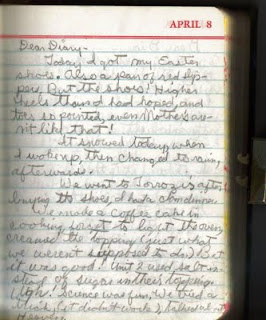 APRIL 8
Dear Diary -
Today I got my Easter
shoes. Also a pair of red slip-
pers. But the shoes! Higher
heels than I had hoped, and
toes so pointed, even Mother's are-
n't like that!
It snowed today, when
I woke up, then changed to rain,
afterwards.
We went to after
buying the shoes, I had a
We made a coffee cake in
cooking, forgot to light the oven,
creamed the topping (just what
we weren't supposed to do.) But
it was good! Unit 2 used salt in-
stead of sugar in their topping.
Science was fun. We tried a
trick, (it didn't work)